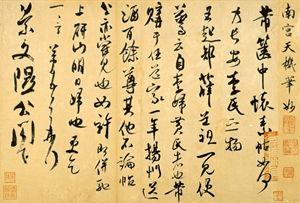 南宮天機筆妙
芾篋中懷素帖如何
乃長安李氏之物
王起部薛道祖一見便
驚云自李歸黃氏者也芾
購於任道家一年揚州送
酒百餘尊其他不論帖
公亦嘗見也如許即併馳
上研山明日歸也更乞
一言芾頓首再拜
景文隰公閣下